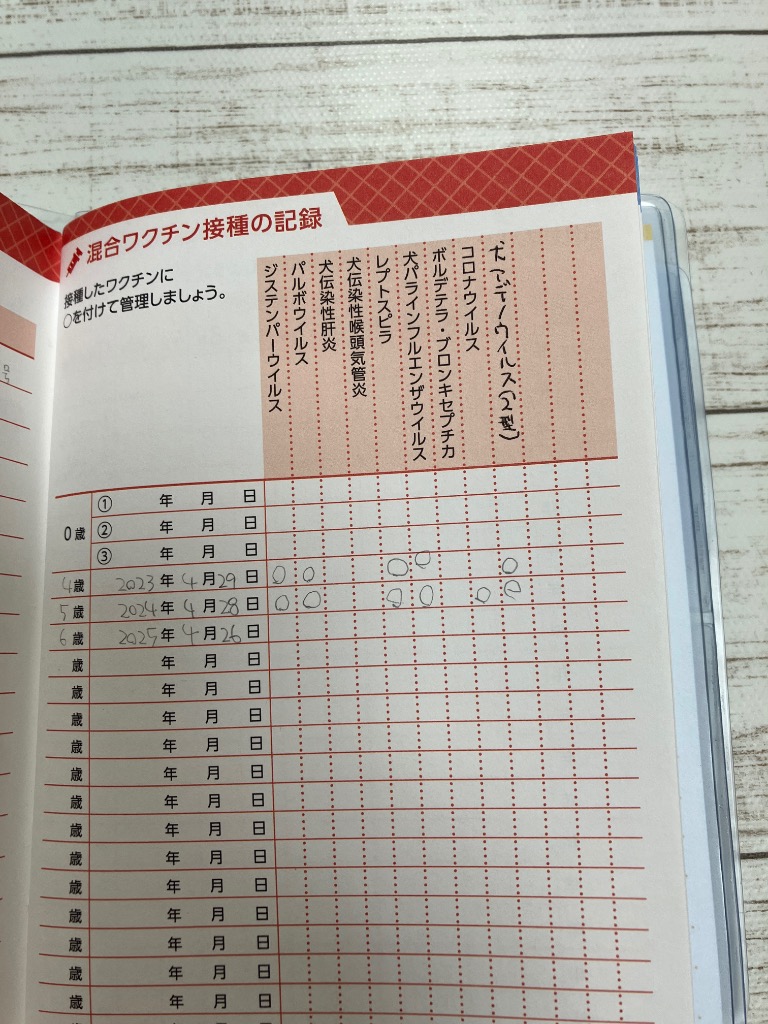 混合ワクチン接種の記録
接種したワクチンに
○を付けて管理しましょう。
ジステンパーウイルス
パルボウイルス
犬伝染性肝炎
犬伝染性喉頭気管炎
レプトスピラ
犬パラインフルエンザウイルス
ボルデテラ・ブロンキセプチカ
コロナウイルス
犬アデノウイルス(2型)
0歳
① 年 月 日
② 年 月 日
③ 年 月 日
4歳 2023年 4月29日 ○ ○ ○ ○ ○
5歳 2024年 4月28日 ○ ○ ○ ○ ○ ○
6歳 2025年 4月26日
歳 年 月 日
歳 年 月 日
歳 年 月 日
歳 年 月 日
歳 年 月 日
歳 年 月 日
歳 年 月 日
歳 年 月 日
歳 年 月 日
歳 年 月 日
歳 年 月 日
歳 年 月 日
歳 年 月 日